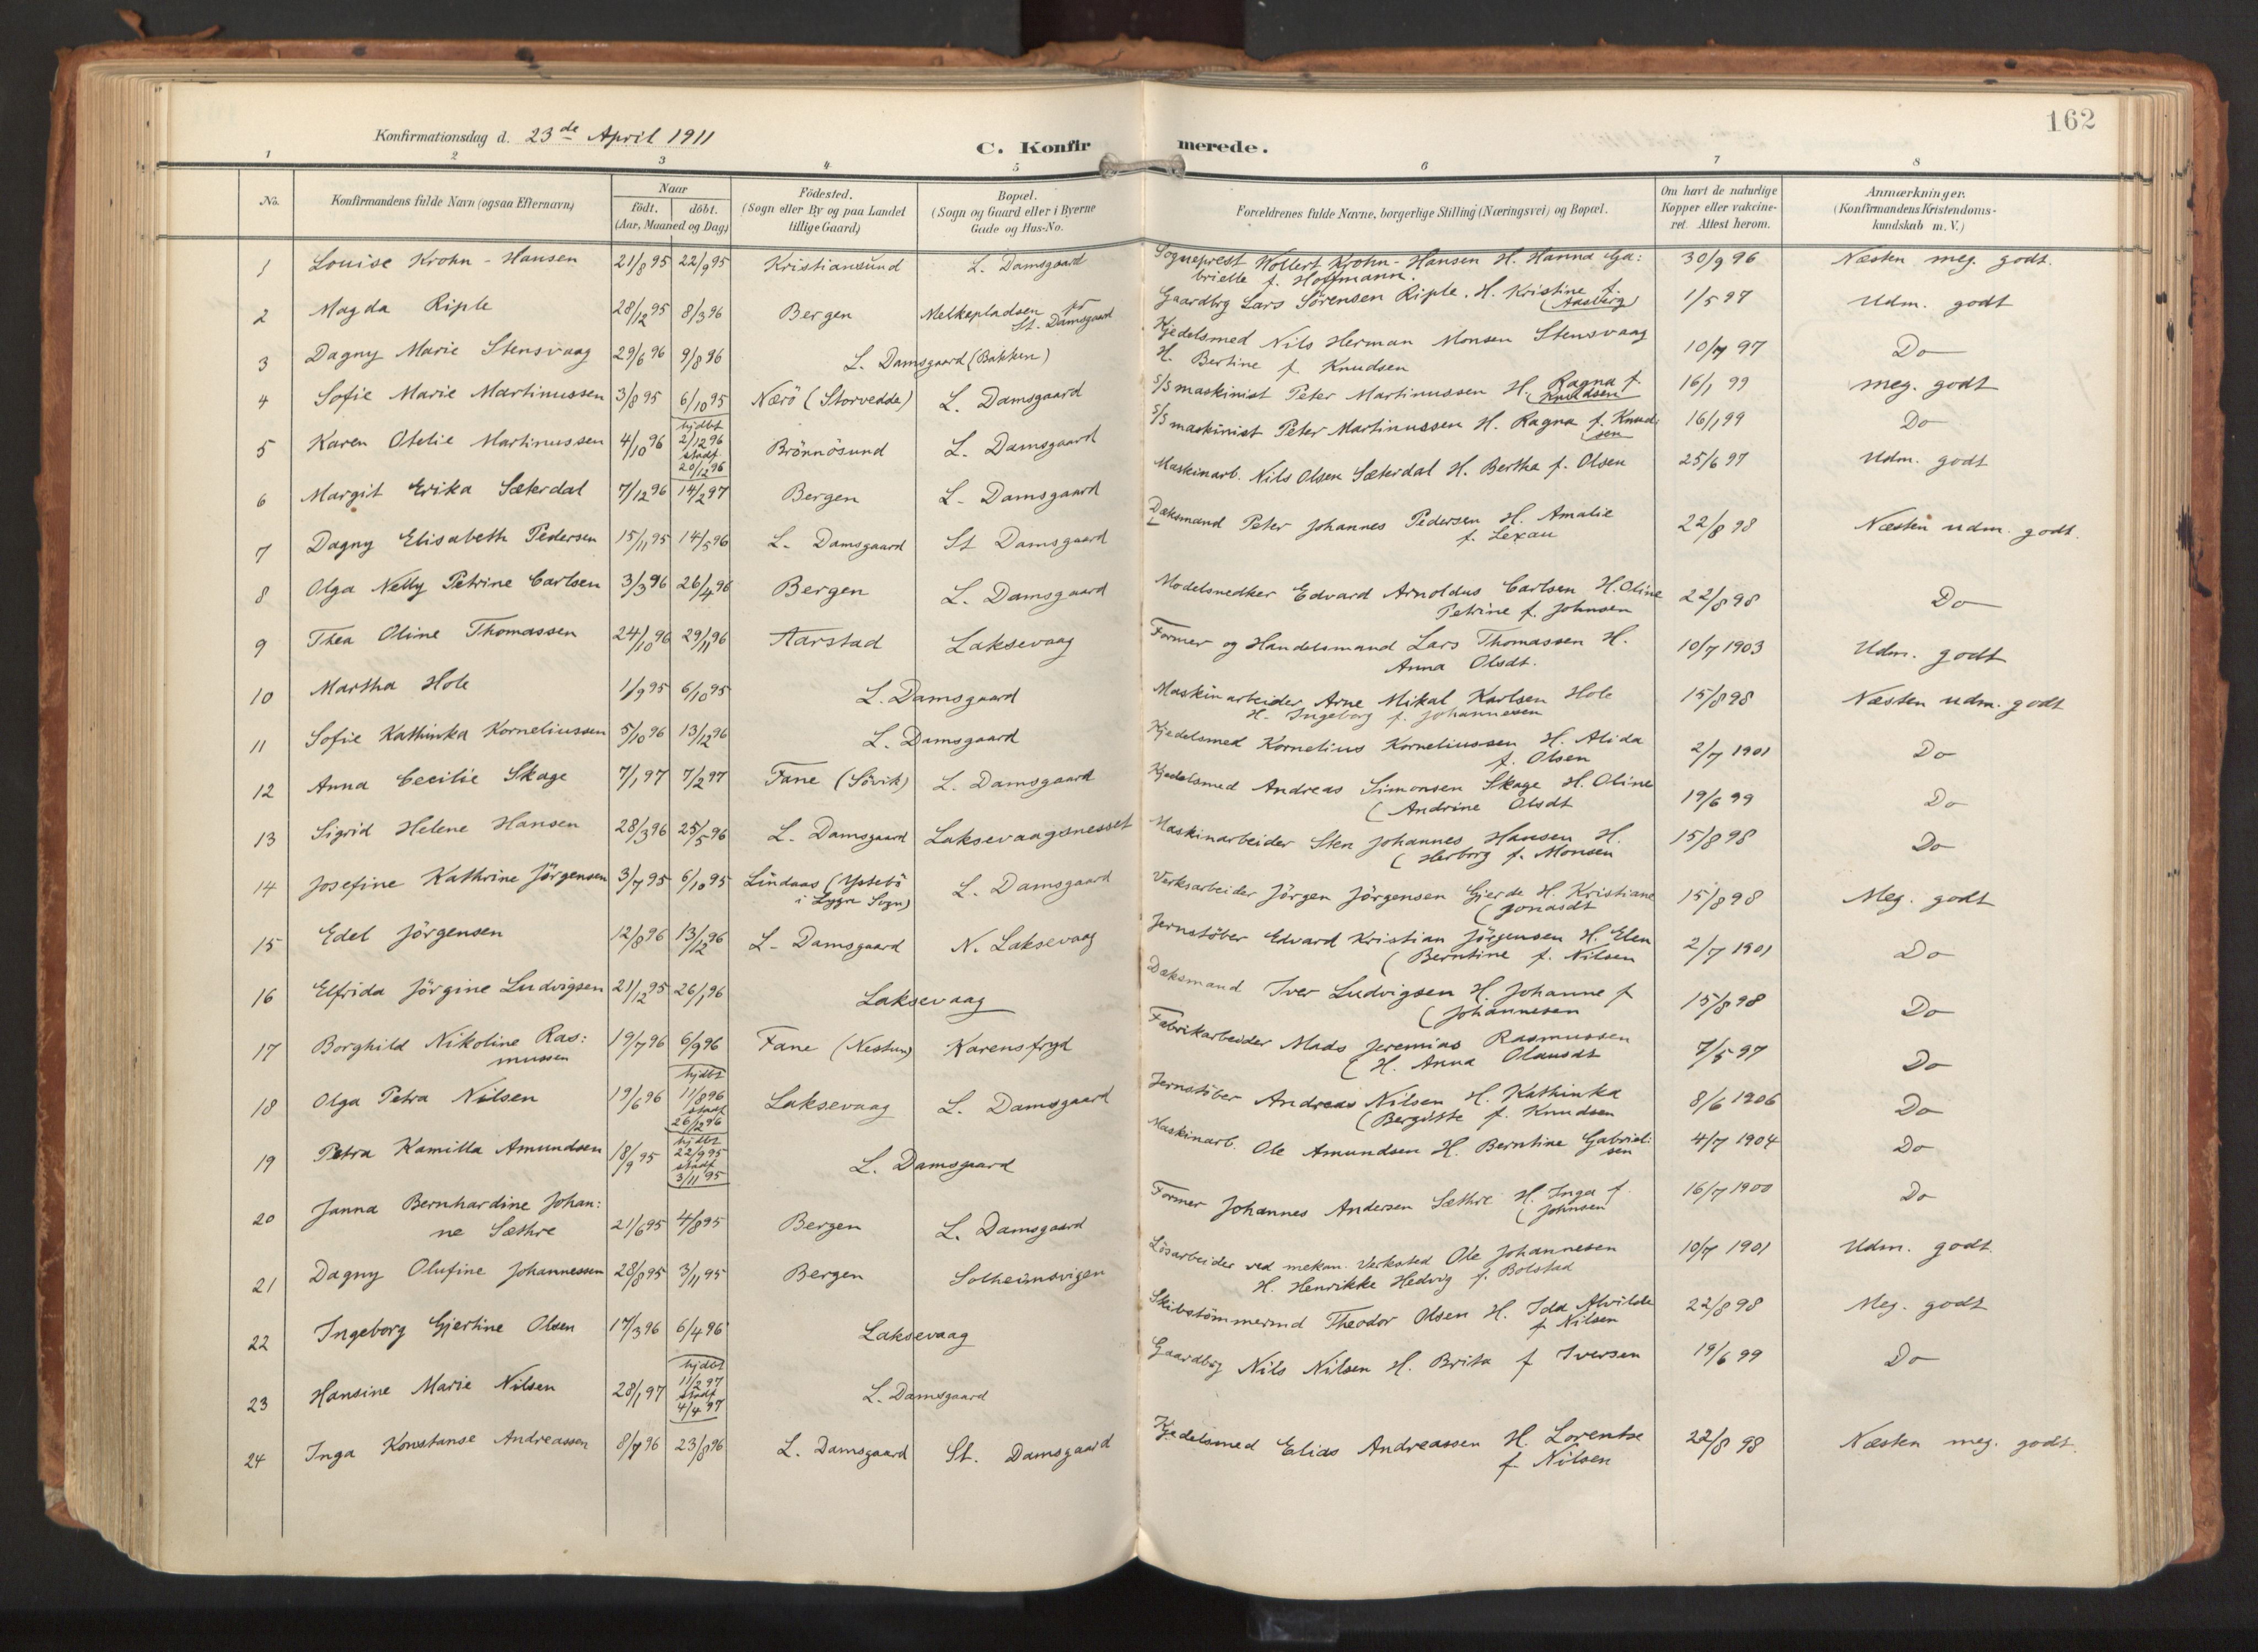 162
Konfirmationsdag d. 23de April 1911
C. Konfirmerede.
1 2 3 4 5 6 7 8
No. | Konfirmandens fulde Navn (ogsaa Efternavn) | Naar födt. döbt. (Aar, Maaned og Dag) | Födested. (Sogn eller By og paa Landet tillige Gaard) | Bopæl. (Sogn og Gaard eller i Byerne Gade og Hus-No. | Forældrenes fulde Navne, borgerlige Stilling (Næringsvei) og Bopæl. | Om havt de naturlige Kopper eller vakcineret. Attest herom. | Anmærkninger. (Konfirmandens Kristendomskundskab m. V.)
1 | Louise Krohn-Hansen | 21/8 95 | 22/9 95 | Kristiansund | L. Damsgaard | Sogneprest Wollert Krohn-Hansen H. Hanna Ga: brielle f. Hoffmann. | 30/9 96 | Næsten meg. godt.
2 | Magda Riple | 28/12 95 | 8/3 96 | Bergen | Melkepladsen pr St. Damsgaard | Gaardbrg Lars Sörensen Riple. H. Kristine f. (Aasberg) | 1/5 97 | Udm. godt
3 | Dagny Marie Stensvaag | 29/6 96 | 9/8 96 | L. Damsgaard (Bakken) | Kjedelsmed Nils Herman Monsen Stensvaag H. Bertine f. Knudsen | 10/7 97 | Do
4 | Sofie Marie Martinussen | 3/8 95 | 6/10 95 | Nærö (Storvedde) | L. Damsgaard | S/S maskinist Peter Martinussen H. Ragna f. (Knudsen | 16/1 99 | meg. godt
5 | Karen Otelie Martinussen | 4/10 96 | hjdbt 2/12 96 stadf. 20/12 96 | Brönnösund | L. Damsgaard | S/S maskinist Peter Martinussen H. Ragna f. Knud: (sen | 16/1 99 | Do
6 | Margit Erika Sæterdal | 7/12 96 | 14/2 97 | Bergen | L. Damsgaard | Maskinarb. Nils Olsen Sæterdal H. Bertha f. Olsen | 25/6 97 | Udm. godt
7 | Dagny Elisabeth Pedersen | 15/11 95 | 14/5 96 | L. Damsgaard | St Damsgaard | Dæksmand Peter Johannes Pedersen H. Amalie f. Lexau | 22/8 98 | Næsten udm. godt.
8 | Olga Nelly Petrine Carlsen | 3/3 96 | 26/4 96 | Bergen | L. Damsgaard | Modelsnedker Edvard Arnoldus Carlsen H. Oline Petrine f. Johnsen | 22/8 98 | Do
9 | Thea Oline Thomassen | 24/10 96 | 29/11 96 | Aarstad | Laksevaag | Former og Handelsmand Lars Thomassen H. Anna Olsdt. | 10/7 1903 | Udm. godt
10 | Martha Hole | 1/9 95 | 6/10 95 | L. Damsgaard | Maskinarbeider Arne Mikal Karlsen Hole H. Ingeborg f. Johannesen | 15/8 98 | Næsten udm. godt
11 | Sofie Kathinka Korneliussen | 5/10 96 | 13/12 96 | L. Damsgaard | Kjedelsmed Kornelius Korneliussen H. Alida f. Olsen | 2/7 1901 | Do
12 | Anna Cecilie Skage | 7/1 97 | 7/2 97 | Fane (Sövik) | L. Damsgaard | Kjedelsmed Andreas Simonsen Skage H. Oline (Andrine Olsdt | 19/6 99 | Do
13 | Sigrid Helene Hansen | 28/3 96 | 25/5 96 | L. Damsgaard | Laksevaagsnesset | Maskinarbeider Sten Johannes Hansen H. (Herborg f. Monsen | 15/8 98 | Do
14 | Josefine Kathrine Jörgensen | 3/7 95 | 6/10 95 | Lindaas (Ystebö i Lygre Sogn) | L. Damsgaard | Verksarbeider Jörgen Jörgensen Gjerde H. Kristiane (Jonasdt | 15/8 98 | Meg. godt
15 | Edel Jörgensen | 12/8 96 | 13/12 96 | L. Damsgaard | N. Laksevaag | Jernstöber Edvard Kristian Jörgensen H. Elen (Berntine f. Nilsen | 2/7 1901 | Do
16 | Elfrida Jörgine Ludvigsen | 21/12 95 | 26/1 96 | Laksevaag | Dæksmand Iver Ludvigsen H. Johanne f (Johannesen | 15/8 98 | Do
17 | Borghild Nikoline Ras: mussen | 19/7 96 | 6/9 96 | Fane (Nestun) | Karensfryd | Fabrikarbeider Mads Jeremias Rasmussen (H. Anna Olausdt | 7/5 97 | Do
18 | Olga Petra Nilsen | 19/6 96 | hjdbt 11/8 96 stadf 26/12 96 | Laksevaag | L. Damsgaard | Jernstöber Andreas Nilsen H. Kathinka (Bergitte f. Knudsen | 8/6 1906 | Do
19 | Petra Kamilla Amundsen | 18/9 95 | hjdbt 22/9 95 stadf 3/11 95 | L. Damsgaard | Maskinarb. Ole Amundsen H. Berntine Gabriel: sen | 4/7 1904 | Do
20 | Janna Bernhardine Johan: ne Sæthre | 21/6 95 | 4/8 95 | Bergen | L. Damsgaard | Former Johannes Andersen Sæthre H. Inga f. (Johnsen | 16/7 1900 | Do
21 | Dagny Olufine Johannessen | 28/8 95 | 3/11 95 | Bergen | Solheimsvigen | Lösarbeider ved mekan. Verksted Ole Johannesen H. Henrikke Hedvig f. Bolstad | 10/7 1901 | Udm. godt.
22 | Ingeborg Gjertine Olsen | 17/3 96 | 6/4 96 | Laksevaag | Skibstömmermd Theodor Olsen H. Ida Alvilde f. Nilsen | 22/8 98 | Meg. godt
23 | Hansine Marie Nilsen | 28/1 97 | hjdbt 11/2 97 stadf 4/4 97 | L. Damsgaard | Gaardbrg Nils Nilsen H. Brita f Iversen | 19/6 99 | Do
24 | Inga Konstanse Andreassen | 8/7 96 | 23/8 96 | L. Damsgaard | St. Damsgaard | Kjedelsmed Elias Andreassen H. Lorentse f. Nilsen | 22/8 98 | Næsten meg. godt.